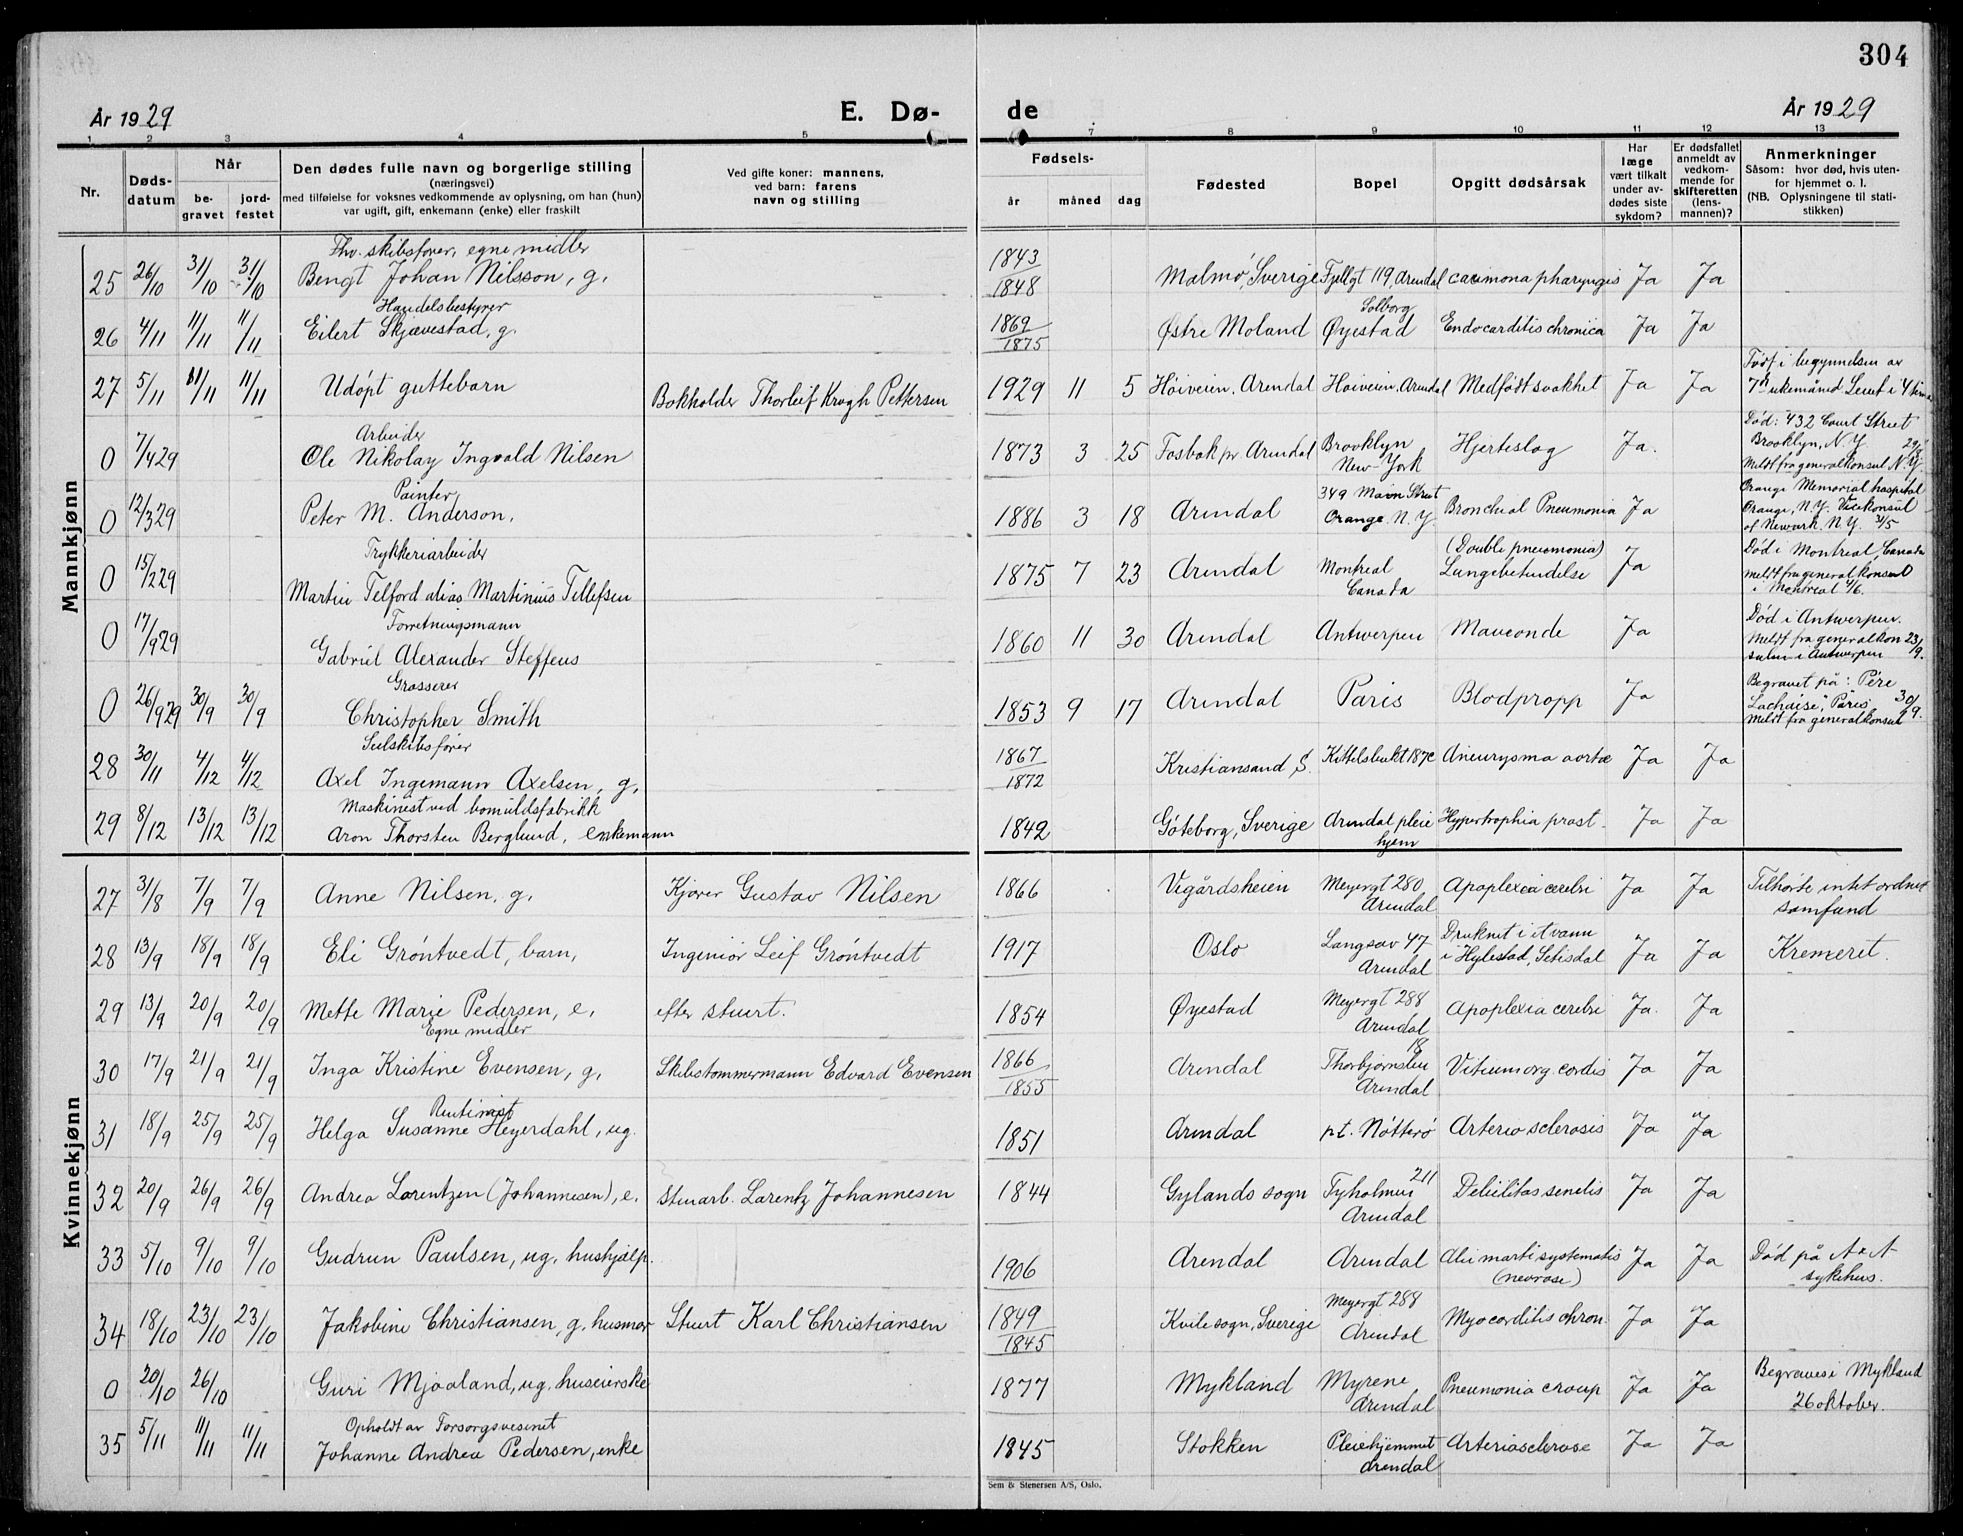 304
År 1929 E. Dø- de År 1929
1 2 3 4 5 7 8 9 10 11 12 13
Nr.
Døds-
datum
Når
be-
gravet
jord-
festet
Den dødes fulle navn og borgerlige stilling
(næringsvei)
med tilføielse for voksnes vedkommende av oplysning, om han (hun)
var ugift, gift, enkemann (enke) eller fraskilt
Ved gifte koner: mannens,
ved barn: farens
navn og stilling
Fødsels-
år måned dag
Fødested
Bopel
Opgitt dødsårsak
Har
læge
vært tilkalt
under av-
dødes siste
sykdom?
Er dødsfallet
anmeldt av
vedkom-
mende for
skifteretten
(lens-
mannen)?
Anmerkninger
Såsom: hvor død, hvis uten-
for hjemmet o. l.
(NB. Oplysningene til stati-
stikken)
Mannkjønn
Fhv. skibsfører, egne midler
25 26/10 31/10 31/10 Bengt Johan Nilsson, g. 1843/1848 Malmö, Sverige Fyllgt 119, Arendal pharyngis Ja Ja
Handelsbestyrer
Solborg
26 4/11 11/11 11/11 Eilert Skjævestad, g. 1869/1875 Østre Moland Øyestad Endocarditis chronica Ja Ja
27 5/11 11/11 11/11 Udöpt guttebarn Bokholder Thorleif Krogh Pettersen 1929 11 5 Höiveien, Arendal Höiveien, Arendal Medfödt svakhet Ja Ja
Födt i begynndelsen av
7de ukemåned Levet i 4 timer
Arbeider
0 7/4 29 Ole Nikolay Ingvald Nilsen 1873 3 25 Fosbæk pr Arendal Brooklyn
New-York
Hjerteslag Ja.
Död: 432 Court Street
Brooklyn, N.Y.
Meldt fra generalkonsul N.Y.
Painter
0 12/3 29 Peter M. Anderson, 1886 3 18 Arendal 349 Main Street
Orange. N.Y. Bronchial Pneumonia Ja
Orange Memorial hospital
Orange, N.Y. Visekonsul
of Newark. N.Y. 31/5
Trykkeriarbeider
0 15/2 29 Martin Telford alias Martinius Tellefsen 1875 7 23 Arendal Montreal
Canada
(Double pneumonia)
Lungebetendelse Ja
Död i Montreal, Canada
meldt fra generalkonsul
i Montreal 4/6.
Forretningsmann
0 17/9 29 Gabriel Alexander Steffens 1860 11 30 Arendal Antwerpen Ja
Död i Antwerpen.
Meldt fra generalkon 23/9.
sulen i Antwerpen
Grosserer
0 26/9 29 30/9 30/9 Christopher Smith 1853 9 17 Arendal Paris Blodpropp Ja
Begravet på: "Père
Lachaise", Paris
Meldt fra generalkonsul 30/9.
Seilskibsfører
28 30/11 4/12 4/12 Axel Ingemann Axelsen, g. 1867/1872 Kristiansand S. Kittelsbukt 187c Aneurysma aortæ Ja Ja
Maskinist ved bomuldsfabrikk
29 8/12 13/12 13/12 Aron Thorsten Berglund, enkemann 1842 Göteborg, Sverige Arendal pleie
hjem
Hypertrophia prost. Ja Ja
Kvinnekjønn
27 31/8 7/9 7/9 Anne Nilsen, g. Kjører Gustav Nilsen 1866 Vigårdsheien Meyergt 280
Arendal
Apoplexia cerebri Ja Ja
Tilhørte intet ordnet
samfund
28 13/9 18/9 18/9 Eli Gröntvedt, barn, Ingeniör Leif Gröntvedt 1917 Oslo Langsæv 47
Arendal
Druknet i et vann
i Hylestad, Setisdal Ja Ja Kremeret.
29 13/9 20/9 20/9 Mette Marie Pedersen, e. efter stuert. 1854 Øyestad Meyergt 288
Arendal
Apoplexia cerebri Ja. Ja
Egne midler
30 17/9 21/9 21/9 Inga Kristine Evensen, g. Skibstømmermann Edvard Evensen 1866/1855 Arendal Thorbjørnsbu 18
Arendal
Vitium org. cordis Ja Ja
Rentenist
31 18/9 25/9 25/9 Helga Susanne Heyerdahl, ug. 1851 Arendal pt. Nötterö Arterio sclerosis Ja Ja
32 20/9 26/9 26/9 Andrea Lorentzen (Johannesen), e. Stuarb. Lorentz Johannesen 1844 Gylands sogn Tyholmen 211
Arendal
Debilitas senilis Ja Ja
33 5/10 9/10 9/10 Gudrun Paulsen, ug, hushjælp. 1906 Arendal Arendal systematis
(nevrose) Ja Ja
Död på A A
sykehus.
34 18/10 23/10 23/10 Jakobine Christiansen, g, husmor Stuert Karl Christiansen 1849/1845 Kvile sogn, Sverige Meyergt 288
Arendal
Myocorditis chron. Ja Ja
0 20/10 26/10 Guri Mjaaland, ug. huseierske 1877 Mykland Myrene
Arendal
Pneumonia croup Ja Ja
Begraves i Mykland
26 oktober.
Opholdt av Forsorgsvesenet
35 5/11 11/11 11/11 Johanne Andrea Pedersen, enke 1845 Stokken Pleiehjemmet
Arendal
Arteriosclerose Ja Ja
Sem & Stenersen A/S, Oslo.